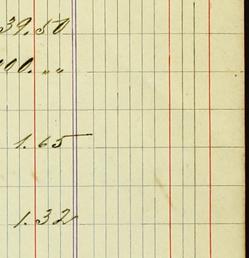 39.50
00. „ „
1.65
1.32